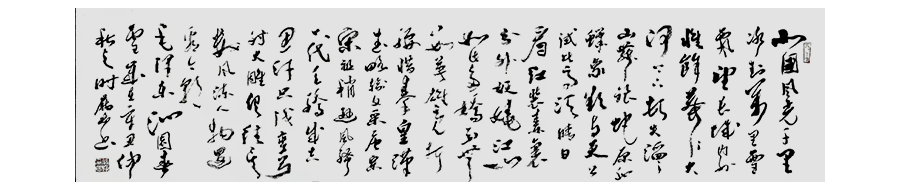 北國風光千里
冰封萬里雪
飄望長城內外
惟餘莽莽大
河上下頓失滔
山舞銀蛇原馳
蠟象欲與天公
試比高須晴日
看紅裝素裹
分外妖嬈江山
如此多嬌引無
數英雄競折
腰惜秦皇漢
武略輸文采唐宗
宋祖稍遜風騷
一代天驕成吉
思汗只識彎弓
射大雕俱往矣
數風流人物還
看今朝
毛澤東沁園春
雪歲在辛丑仲
秋之時書